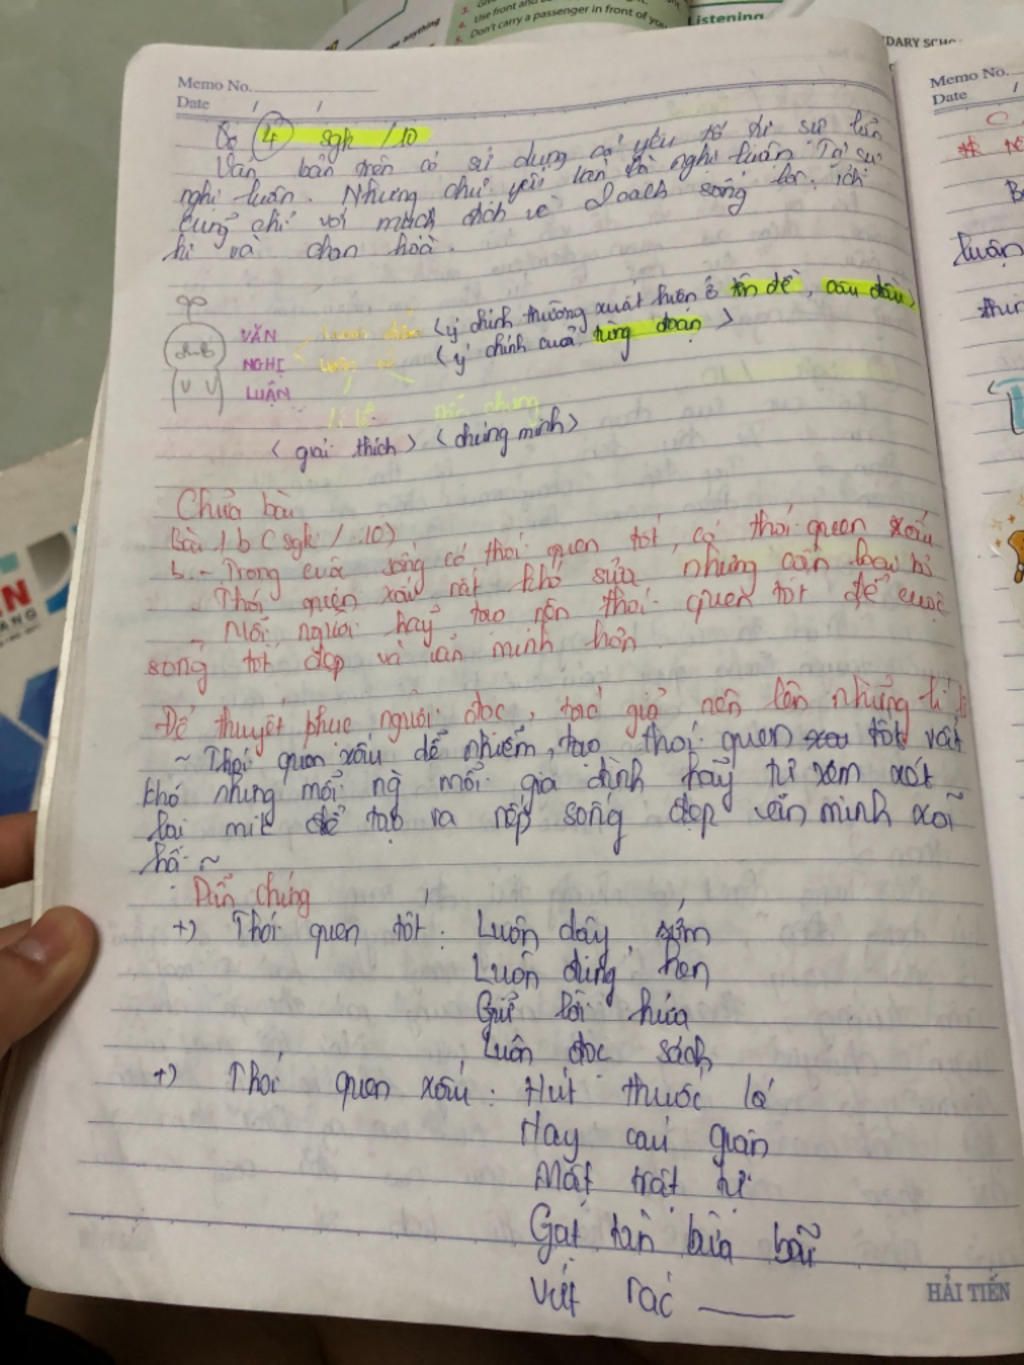 anything
Use front and
Don't carry a passenger in front of you
Listening
DARY SCHO
Memo No.
Date / /
4 sgk /10
Văn bản trên có sử dụng cả yếu tố tự sự lẫn
nghị luận. Nhưng chủ yếu vẫn là nghị luận. Tự sự
cũng chỉ với mục đích về Doạch sống
hi và chan hoà.
VĂN
NGHỊ
LUẬN
(ý chính thường xuất hiện ở tên đề, câu đầu)
(ý chính của từng đoạn)
Lí lẽ dẫn chứng
(giải thích) (chứng minh)
Chữa bài
Bài 1b (sgk / 10)
b. - Trong cuộc sống có thói quen tốt, có thói quen xấu
- Thói quen xấu rất khó sửa nhưng cần loại bỏ
- Mỗi người hãy tạo nên thói quen tốt để cuộc
sống tốt đẹp và văn minh hơn.
Để thuyết phục người đọc, tác giả nên lên những lí lẽ
~ Thói quen xấu dễ nhiễm, tạo thói quen tốt rất
khó nhưng mỗi ng mỗi gia đình hãy tự xem xét
lại mik để tạo ra nếp sống đẹp văn minh xã
hội ~
Dẫn chứng
+) Thói quen tốt: Luôn dậy sớm
Luôn đúng hẹn
Giữ lời hứa
Luôn đọc sách
+) Thói quen xấu: Hút thuốc lá
Hay cáu giận
Mất trật tự
Gạt tàn bừa bãi
Vứt rác
HẢI TIẾN
Memo No.
Date /
luận